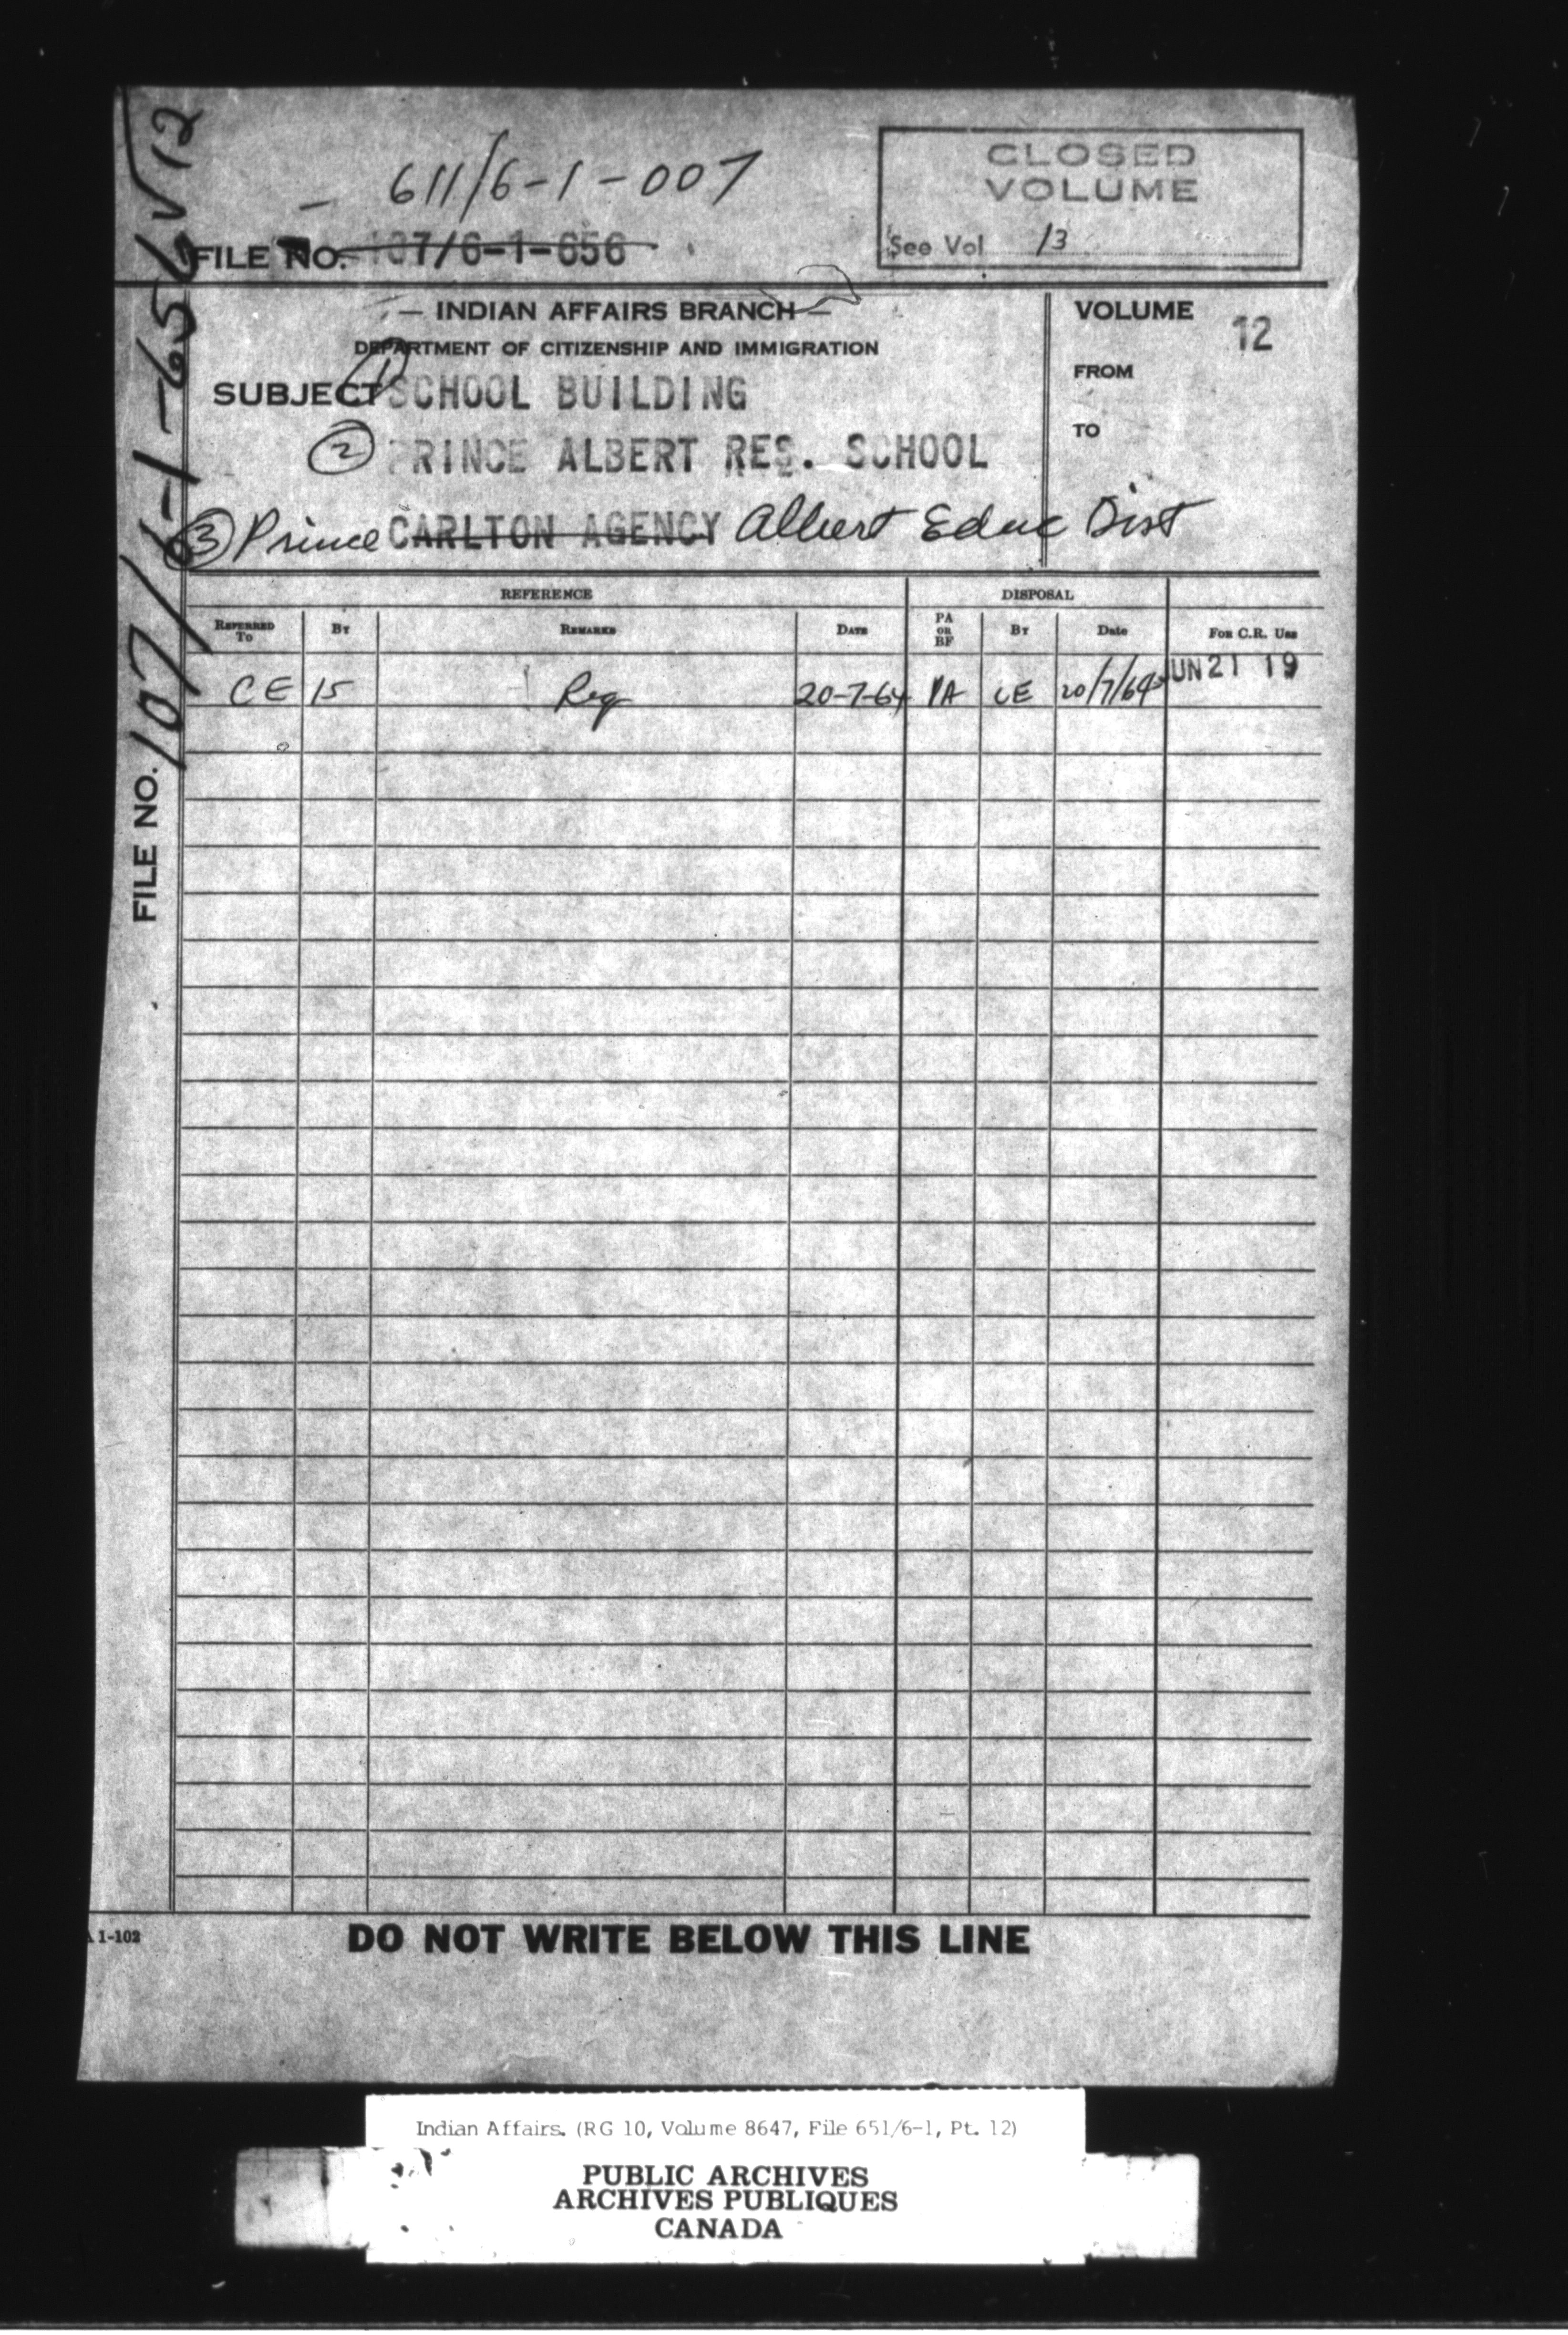 611/6-1-007
CLOSED
VOLUME
See Vol 13
FILE NO. 107/6-1-656
— INDIAN AFFAIRS BRANCH —
DEPARTMENT OF CITIZENSHIP AND IMMIGRATION
SUBJECT ① SCHOOL BUILDING
② PRINCE ALBERT RES. SCHOOL
③ Prince CARLTON AGENCY Albert Educ Dist
VOLUME 12
FROM
TO
FILE NO. 107/6-1-656 V 12
REFERENCE DISPOSAL
REFERRED TO BY REMARKS DATE PA OR BF BY Date FOR C.R. USE
CE 15 Req 20-7-64 PA CE 20/7/64 UN 21 19
A 1-102
DO NOT WRITE BELOW THIS LINE
Indian Affairs. (RG 10, Volume 8647, File 651/6-1, Pt. 12)
PUBLIC ARCHIVES
ARCHIVES PUBLIQUES
CANADA